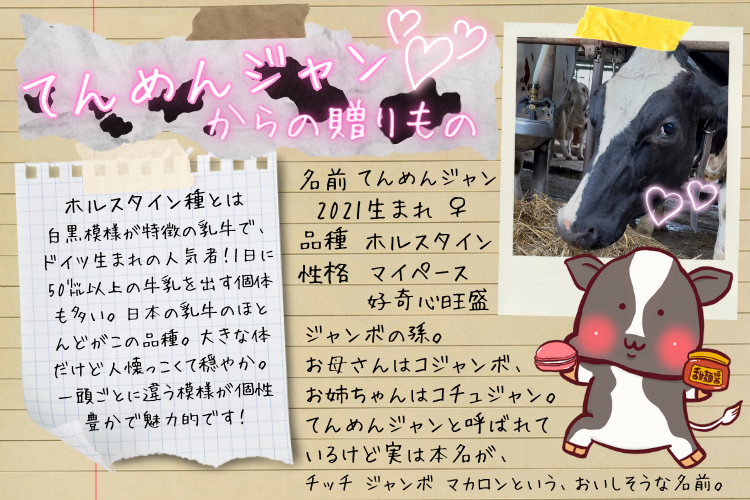 てんめんジャン
からの贈りもの
ホルスタイン種とは
白黒模様が特徴の乳牛で、
ドイツ生まれの人気者!1日に
50㍑以上の牛乳を出す個体
も多い。日本の乳牛のほと
んどがこの品種。大きな体
だけど人懐っこくて穏やか。
一頭ごとに違う模様が個性
豊かで魅力的です!
名前 てんめんジャン
2021生まれ ♀
品種 ホルスタイン
性格 マイペース
好奇心旺盛
ジャンボの孫。
お母さんはコジャンボ、
お姉ちゃんはコチュジャン。
てんめんジャンと呼ばれて
いるけど実は本名が、
チッチ ジャンボ マカロンという、おいしそうな名前。
甜麺醤